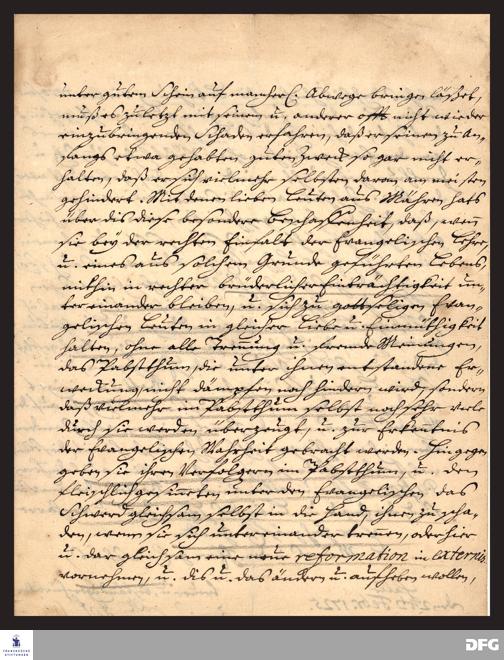 unter gutem Schein auf mancherl. Abwege bringen läßet,
muß es zuletzt mit seinem u. anderer offt nicht wieder
einzubringenden Schaden erfahren, daß er seinen zu An-
fangs etwa gehabten guten Zweck so gar nicht er-
halten, daß er sich vielmehr selbsten daran am meisten
gehindert. Mit denen lieben Leuten aus Mähren hats
über dis diese besondere Beschaffenheit, daß, wenn
sie bey der rechten Einfalt der Evangelischen Lehre,
u. eines aus solchem Grunde geführten Lebens,
mithin in rechter brüderlicher Einträchtigkeit un-
ter einander bleiben, u. sich zu gottseligen Evan-
gelischen Leuten in gleicher Liebe u. Einmüthigkeit
halten, ohne alle Trennung u. fremde Meinungen,
das Pabstthum, die unter ihnen entstandene Er-
weckung nicht dämpfen noch hindern wird, sondern
daß vielmehr im Pabstthum selbst noch sehr viele
durch sie werden überzeugt, u. zur Erkentnis
der Evangelischen Wahrheit gebracht werden. Hingegen
geben sie ihren Verfolgern im Pabstthum, u. den
fleischlich gesinneten unter den Evangelischen, das
Schwerd gleichsam selbst in die Hand, ihnen zu scha-
den, wenn sie sich unter einander trennen, oder hier
u. dar gleichsam eine neue reformation in externis
vornehmen, u. dis u. das ändern u. aufheben wollen,
FRANCKESCHE
STIFTUNGEN
DFG